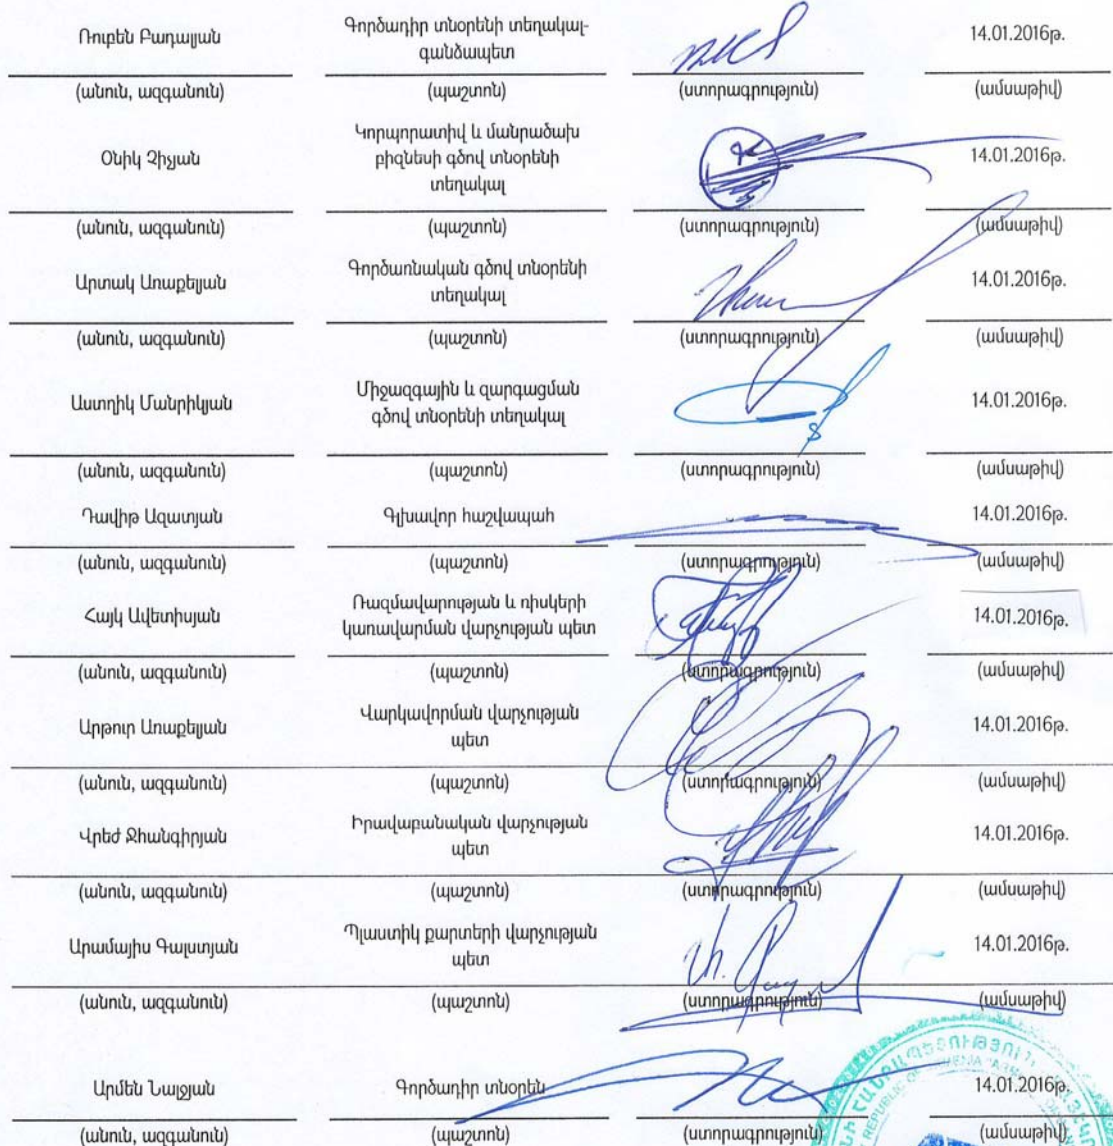 Ռուբեն Բադալյան
Գործադիր տնօրենի տեղակալ-
գանձապետ
14.01.2016թ.
(անուն, ազգանուն) (պաշտոն) (ստորագրություն) (ամսաթիվ)
Օնիկ Չիչյան
Կորպորատիվ և մանրածախ
բիզնեսի գծով տնօրենի
տեղակալ
14.01.2016թ.
(անուն, ազգանուն) (պաշտոն) (ստորագրություն) (ամսաթիվ)
Արտակ Առաքելյան
Գործառնական գծով տնօրենի
տեղակալ
14.01.2016թ.
(անուն, ազգանուն) (պաշտոն) (ստորագրություն) (ամսաթիվ)
Աստղիկ Մանրիկյան
Միջազգային և զարգացման
գծով տնօրենի տեղակալ
14.01.2016թ.
(անուն, ազգանուն) (պաշտոն) (ստորագրություն) (ամսաթիվ)
Դավիթ Ազատյան Գլխավոր հաշվապահ 14.01.2016թ.
(անուն, ազգանուն) (պաշտոն) (ստորագրություն) (ամսաթիվ)
Հայկ Ավետիսյան
Ռազմավարության և ռիսկերի
կառավարման վարչության պետ
14.01.2016թ.
(անուն, ազգանուն) (պաշտոն) (ստորագրություն) (ամսաթիվ)
Արթուր Առաքելյան
Վարկավորման վարչության
պետ
14.01.2016թ.
(անուն, ազգանուն) (պաշտոն) (ստորագրություն) (ամսաթիվ)
Վրեժ Ջհանգիրյան
Իրավաբանական վարչության
պետ
14.01.2016թ.
(անուն, ազգանուն) (պաշտոն) (ստորագրություն) (ամսաթիվ)
Արամայիս Գալստյան
Պլաստիկ քարտերի վարչության
պետ
14.01.2016թ.
(անուն, ազգանուն) (պաշտոն) (ստորագրություն) (ամսաթիվ)
Արմեն Նալջյան Գործադիր տնօրեն 14.01.2016թ.
(անուն, ազգանուն) (պաշտոն) (ստորագրություն) (ամսաթիվ)
REPUBLIC OF